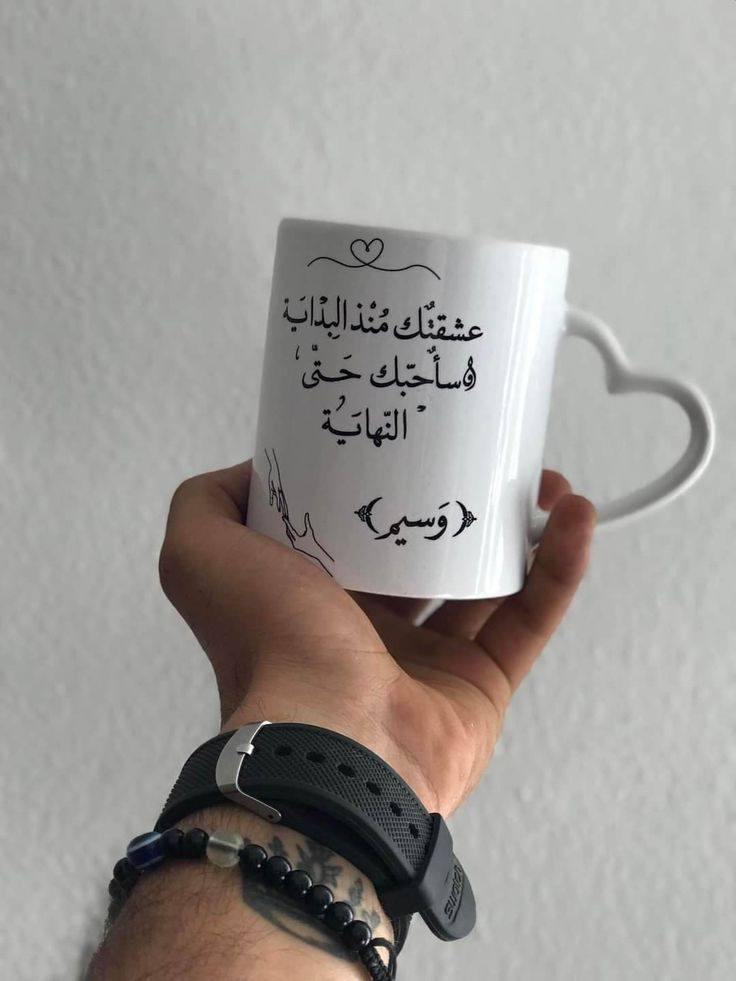 عشقتُك مُنْذ البِدْايَة
وَسأُحبّك حَتّى
النّهايَُة
(وَسيم)